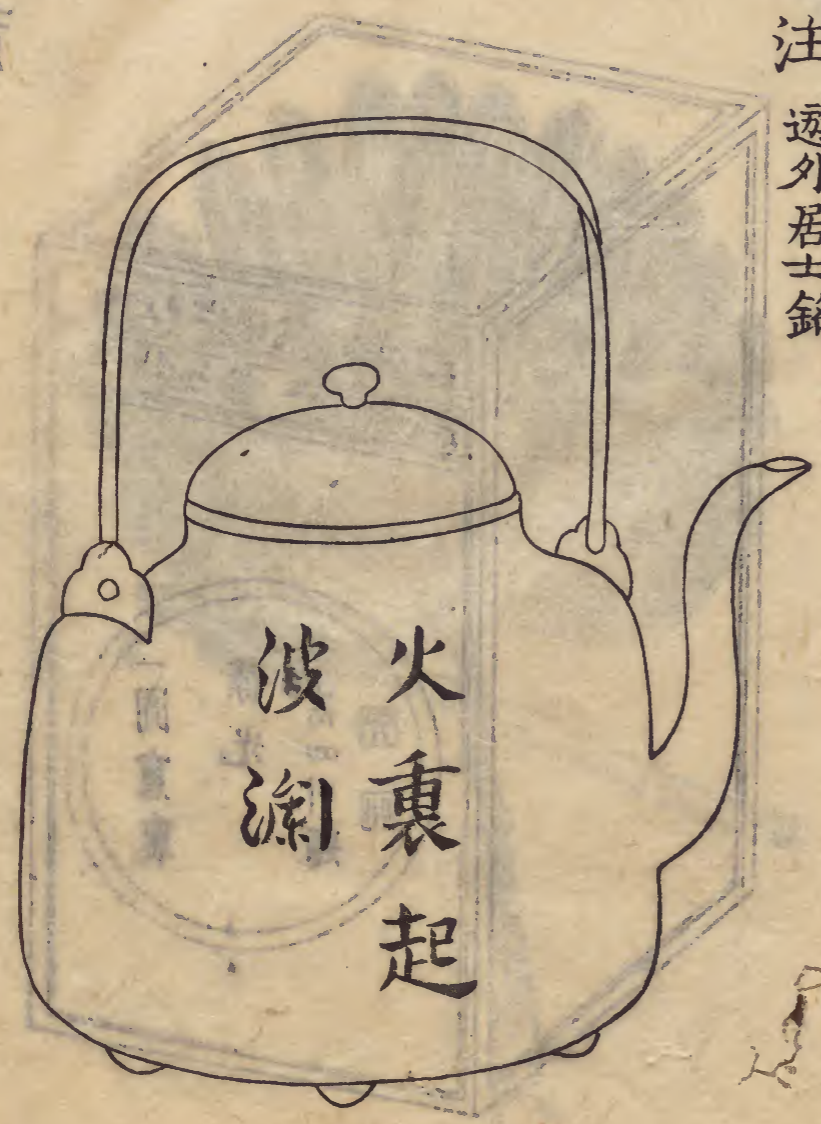 注 遊外居士銘
火裏起
波瀾